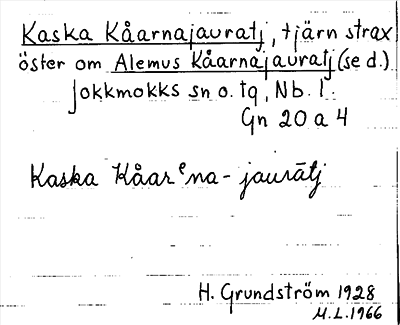 Kaska Kåarnajauratj, tjärn strax
öster om Alemus Kåarnajauratj (se d.)
Jokkmokks sn o. tg, Nb. l.
Gn 20 a 4
Kaska Kåarᵉna-jaurātj
H. Grundström 1928
M.L. 1966